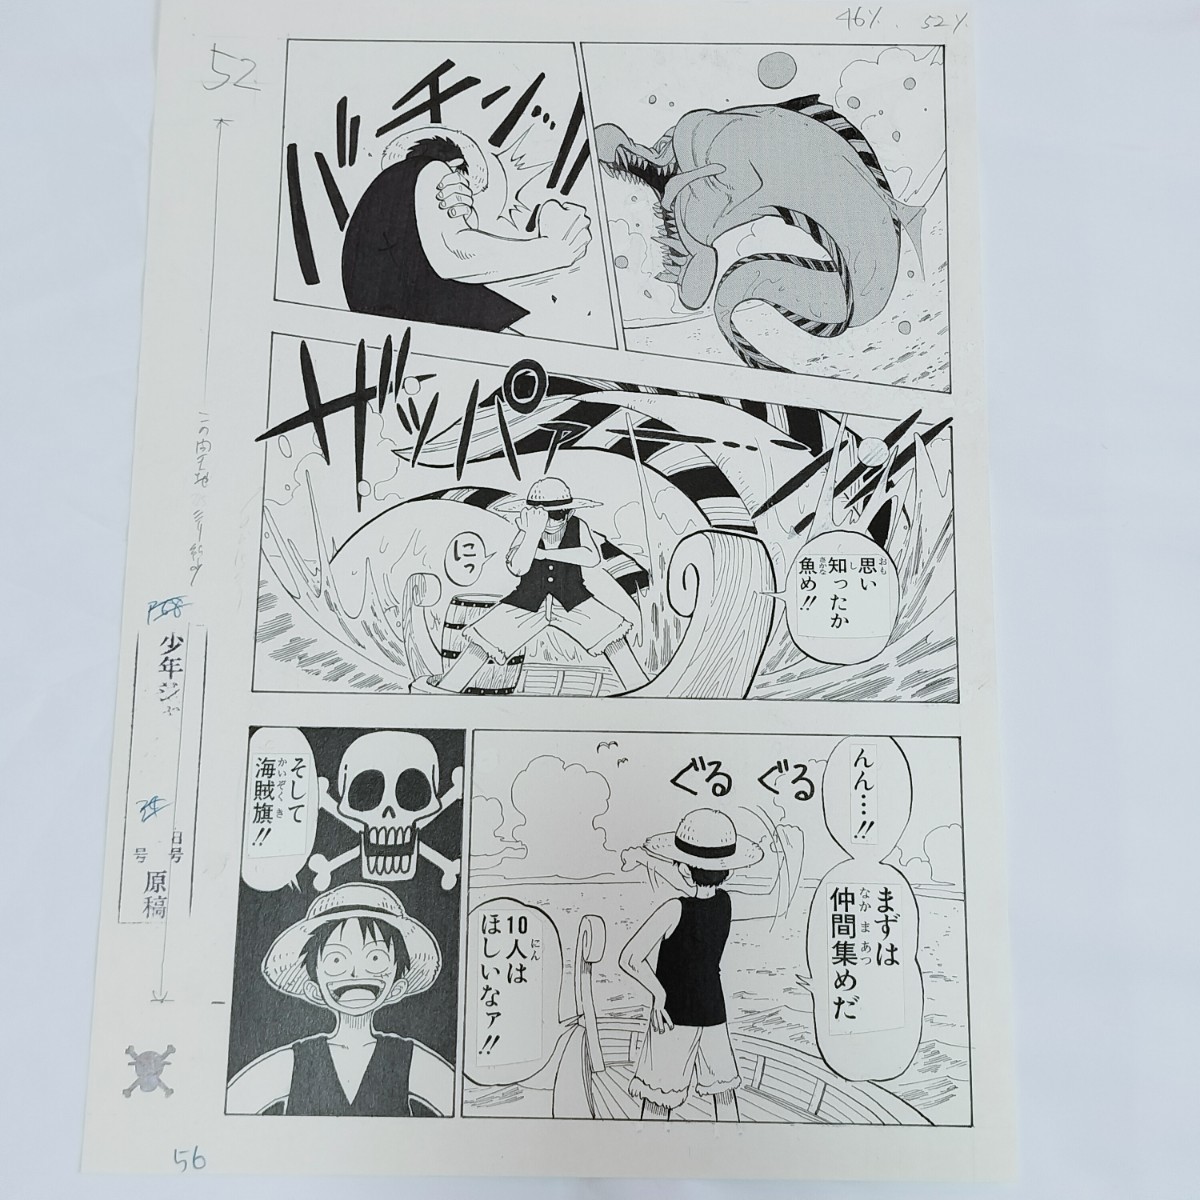 46%. 52%.
52
バチンッ…!!
ザッパァーーン
にっ
思い
知ったか
魚め!!
んん…!!
まずは
仲間集めだ
ぐる ぐる
10人は
ほしいなァ!!
そして
海賊旗!!
少年ジャ
日号
号
原稿
56